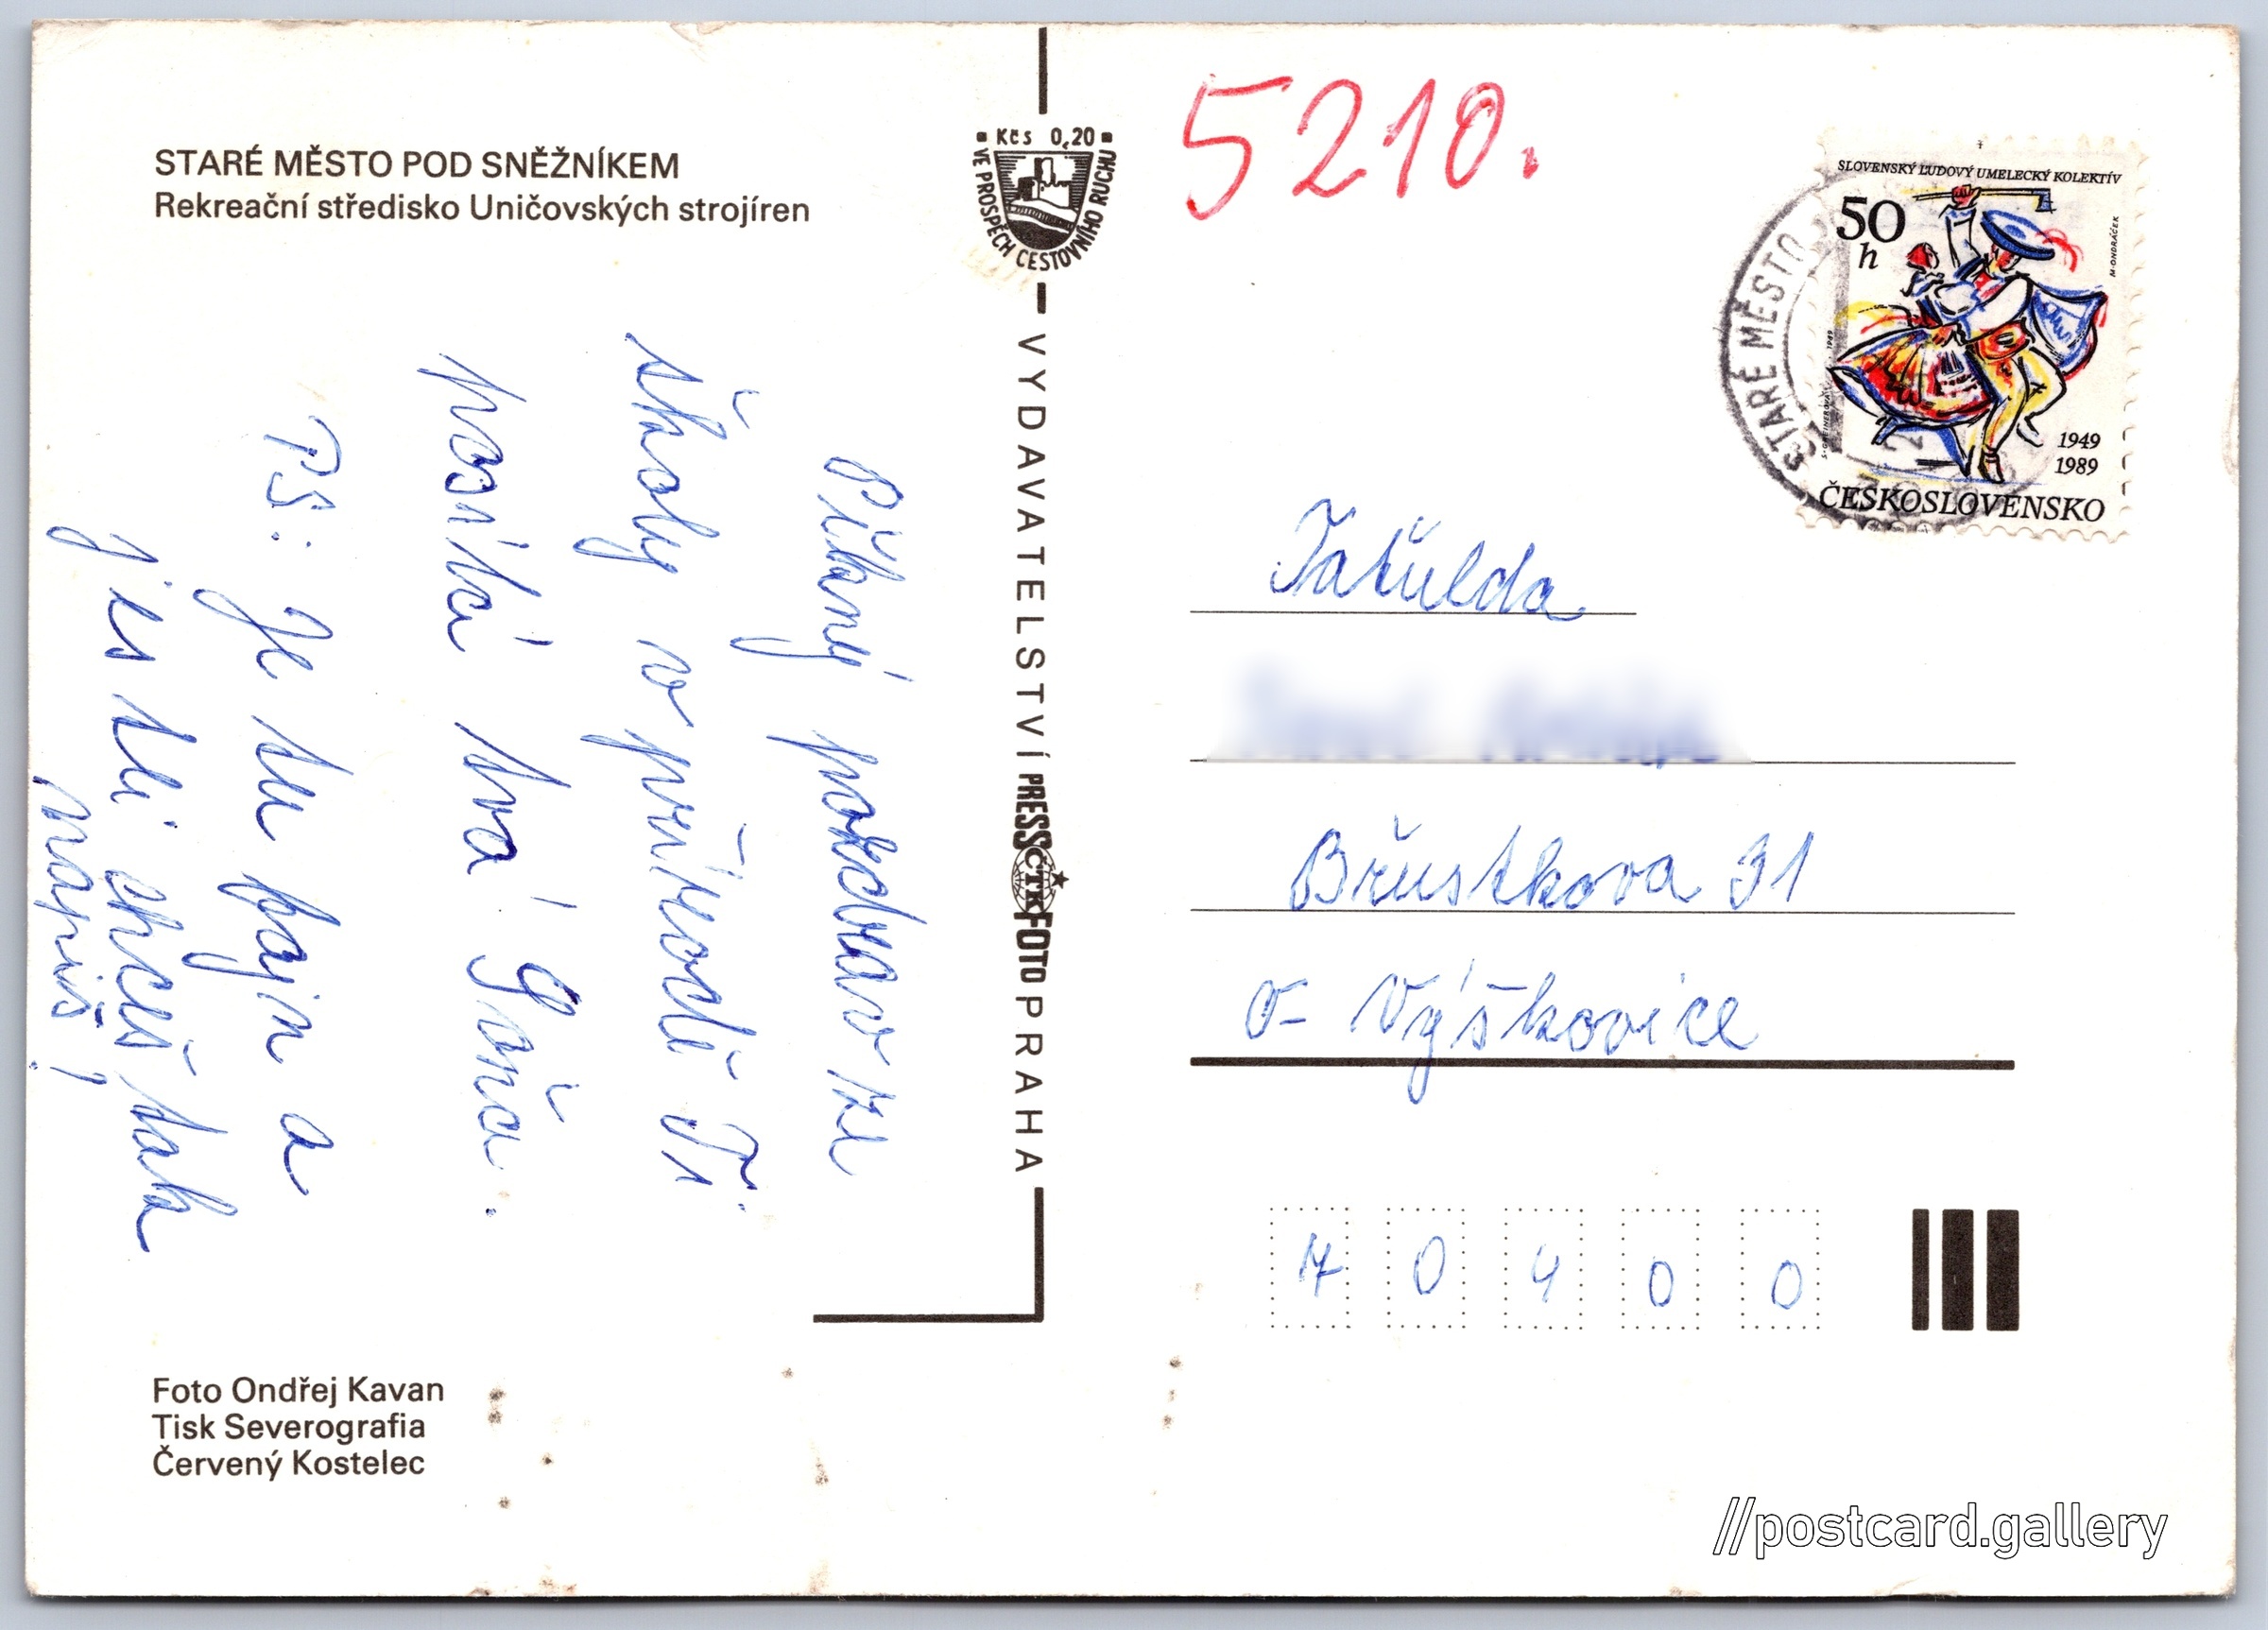 STARÉ MĚSTO POD SNĚŽNÍKEM
Rekreační středisko Uničovských strojíren
Pěkný pozdrav ze
školy v přírodě Ti
posílá tvá Gáňa.
PS: Je tu fajn a
jes tli chceš tak
napiš!
Foto Ondřej Kavan
Tisk Severografia
Červený Kostelec
Kčs 0,20
VE PROSPĚCH CESTOVNÍHO RUCHU
VYDAVATELSTVÍ PRESSFOTO PRAHA
ČTK
5210.
STARÉ MĚSTO
SLOVENSKÝ ĽUDOVÝ UMELECKÝ KOLEKTÍV
50
h
M. ONDRÁČEK
1949
1989
ČESKOSLOVENSKO
Břustkova 31
O- Výškovice
7 0 4 0 0
//postcard.gallery